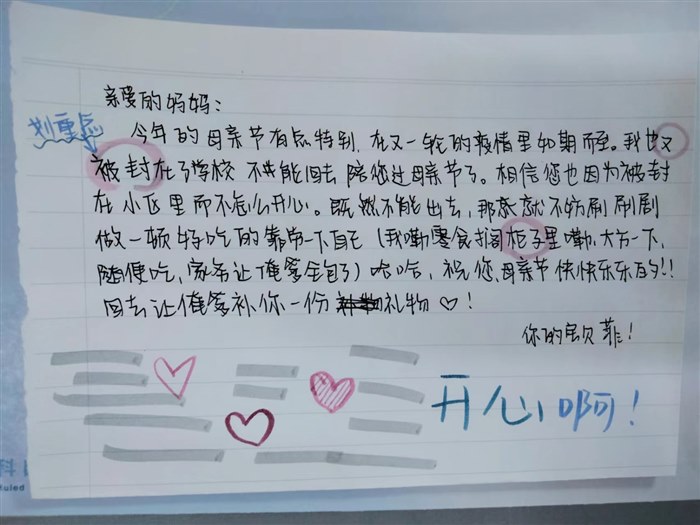 亲爱的妈妈：
划重点
今年的母亲节有点特别，在又一轮的疫情里如期而至。我也又
被封在了学校 不能回去陪您过母亲节了。相信您也因为被封
在小区里而不怎么开心。既然不能出去，那您就不妨刷刷剧
做一顿好吃的犒劳一下自己（我嘞零食搁柜子里嘞，大方一下，
随便吃，家务让俺爹全包了）哈哈，祝您母亲节快快乐乐的!!
回去让俺爹补你一份礼物♡！
你的 菲！
开心啊！